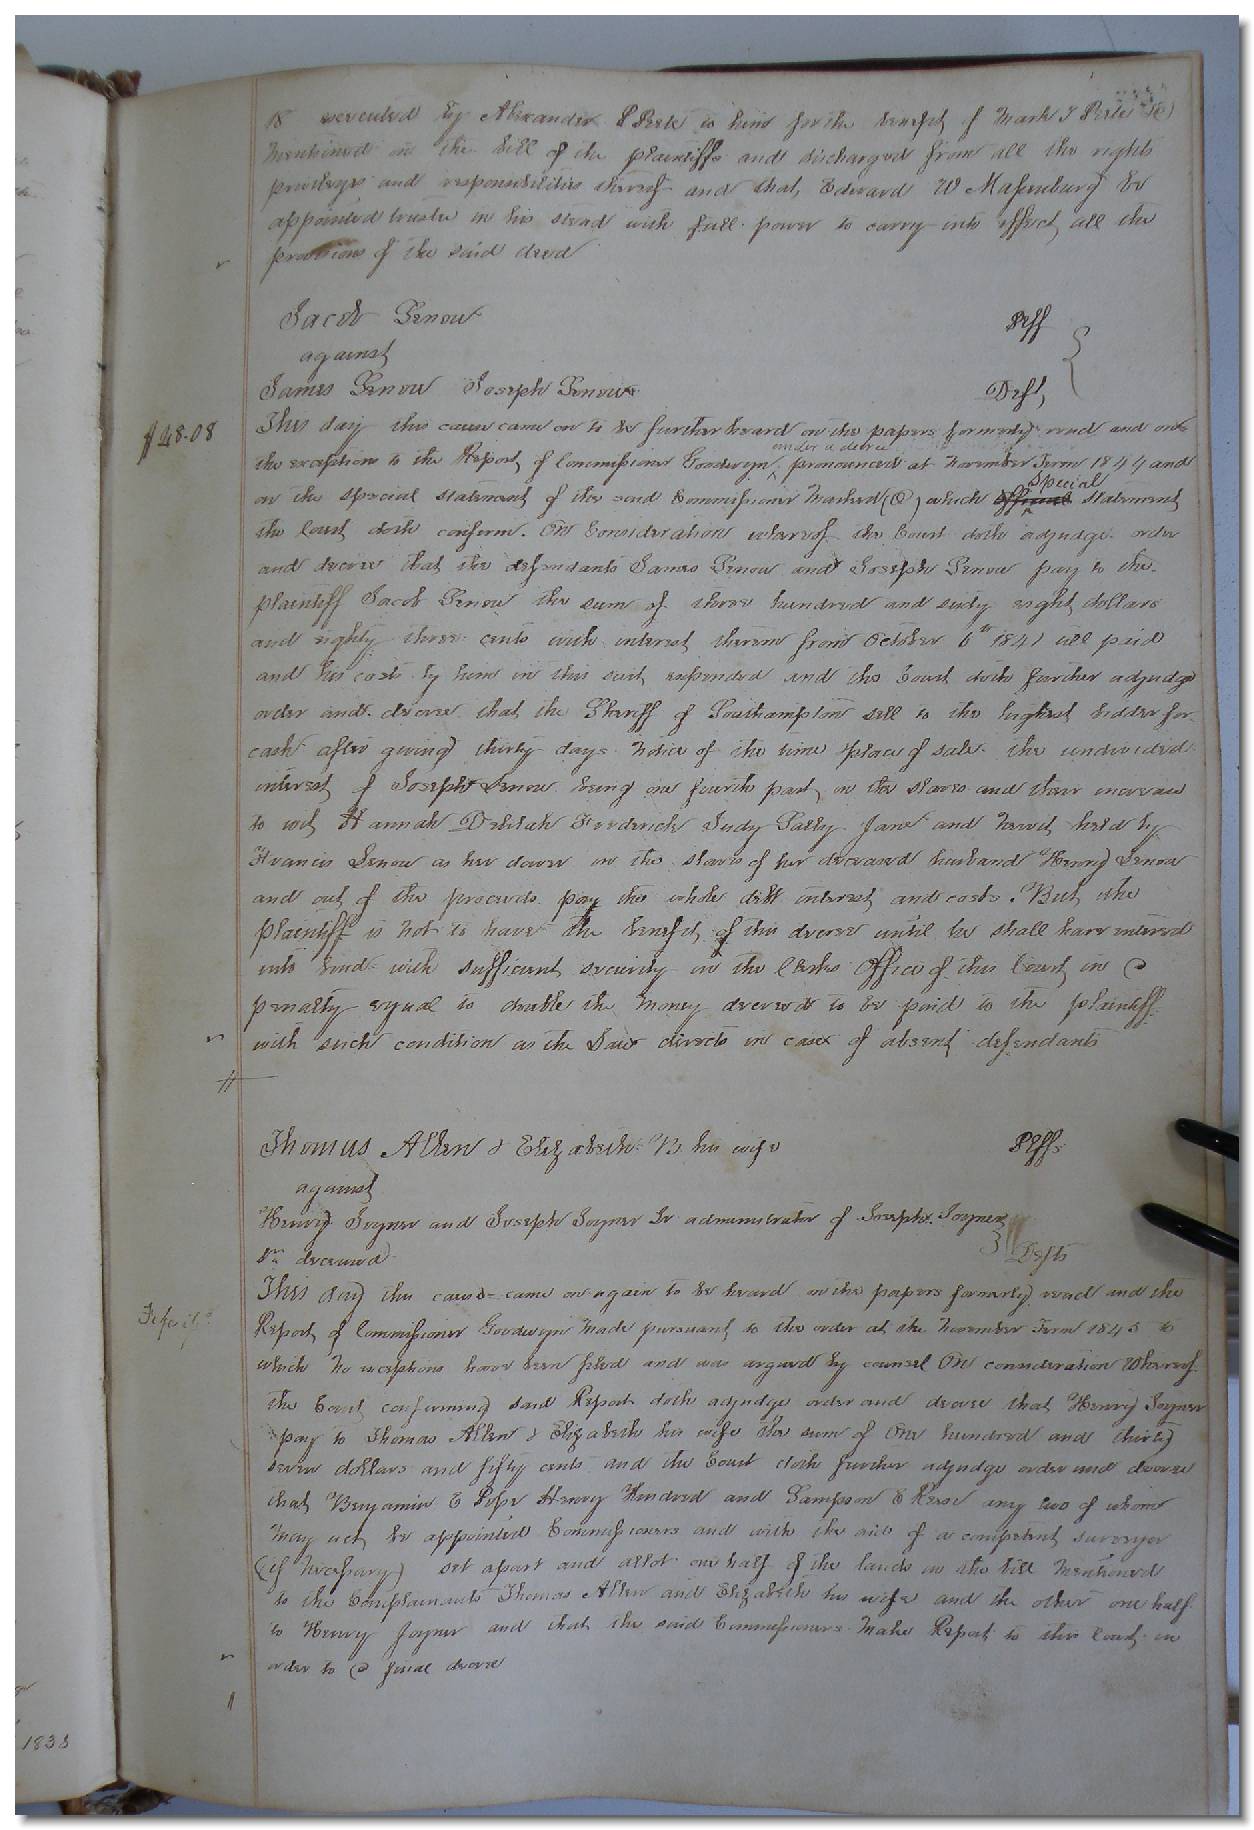 executed by Alexander P Peete to him for the benefit of Mark J Peete &c)
mentioned in the bill of the plaintiffs and discharged from all the rights
privileges and responsibilities thereof and that Edward W Massenburg be
appointed trustee in his stead with full power to carry into effect all the
provisions of the said deed
Jacob Senow Plff
against
James Senow Joseph Senow Deft,
$48.08
This day this cause came on to be further heard on the papers formerly read and on
under a decree
the exception to the Report of Commissioner Goodwyn pronounced at November Term 1844 and
Special
on the special statement of the said Commissioner marked (@) which official statement
the Court doth confirm. On Consideration whereof the Court doth adjudge order
and decree that the defendants James Senow and Joseph Senow pay to the
plaintiff Jacob Senow the sum of three hundred and sixty eight dollars
and eighty three cents with interest thereon from October 6th 1841 till paid
and his costs by him in this suit expended and the Court doth further adjudge
order and decree that the Sheriff of Southampton sell to the highest bidder for
cash after giving thirty days notice of the time place of sale the undivided
interest of Joseph Senow being one fourth part in the slaves and their increase
to wit Hannah Delilah Frederick Judy Patty Jane and held by
Francis Senow as her dower in the slaves of her deceased husband Henry Senow
and out of the proceeds pay the whole debt interest and costs. But the
plaintiff is not to have the benefit of this decree until he shall have entered
into bond with sufficient security in the Clerks Office of this Court in a
penalty equal to double the money decreed to be paid to the plaintiff
with such condition as the Law directs in cases of absent defendants
Thomas Allen & Elizabeth B his wife Plffs
against
Henry Joyner and Joseph Joyner Jr administrator of Joseph Joyner
Sr deceased Defts
This day this cause came on again to be heard on the papers formerly read and the
Report of Commissioner Goodwyn made pursuant to the order at the November Term 1843 to
which no exceptions have been filed and was argued by counsel On consideration Whereof
the Court confirming said Report doth adjudge order and decree that Henry Joyner
pay to Thomas Allen & Elizabeth his wife the sum of One hundred and thirty
seven dollars and fifty cents and the Court doth further adjudge order and decree
that Benjamin E Pope Henry Kindred and Sampson C Reese any two of whom
may act be appointed Commissioners and with the aid of a competent surveyor
(if necessary) set apart and allot one half of the lands in the bill mentioned
to the Complainants Thomas Allen and Elizabeth his wife and the other one half
to Henry Joyner and that the said Commissioners make Report to this Court in
order to a final decree
1838